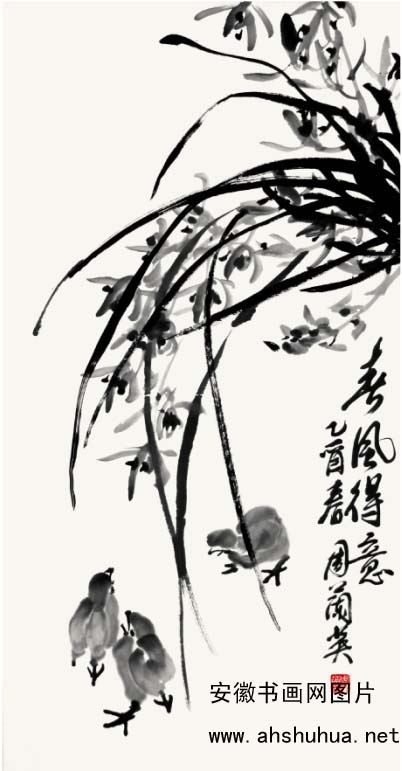 春风得意
乙酉春
周兰英
安徽书画网图片
www.ahshuhua.net